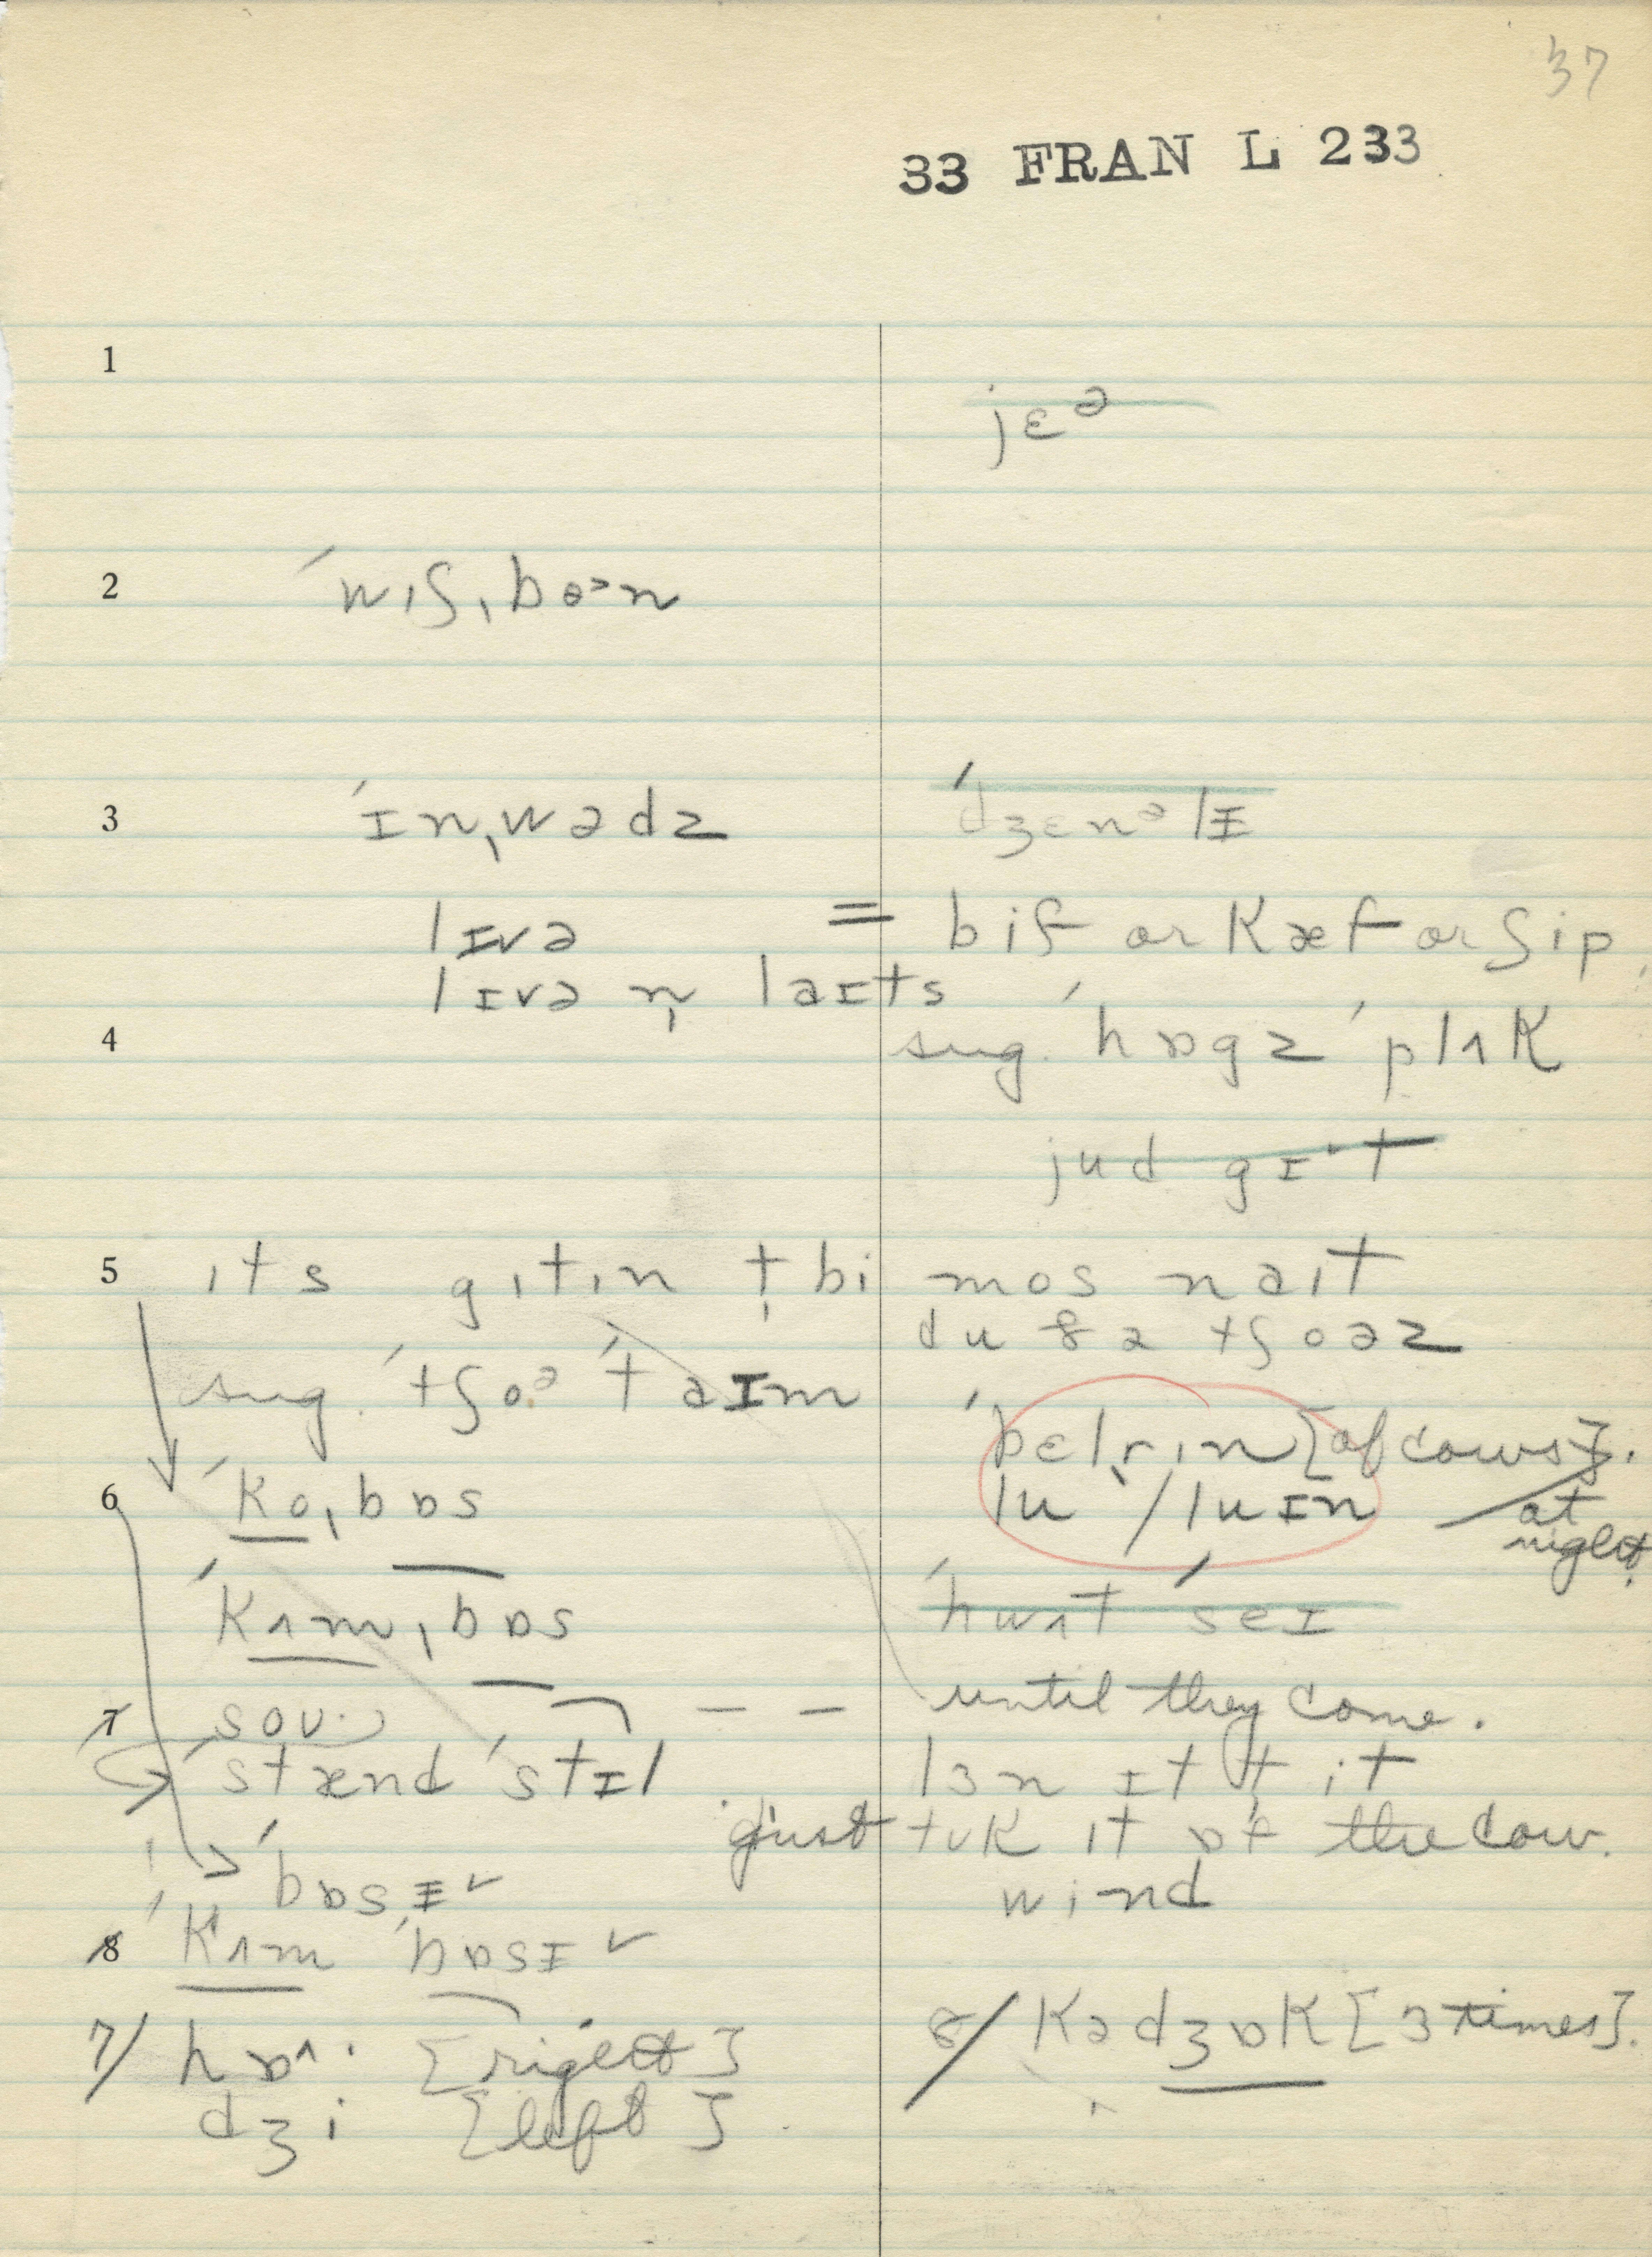 37
33 FRAN L 233
1
jɛᵊ
2 ˈwɪʃˌboᵊn
3 ˈɪnˌwədz ˈdʒɛnᵊlɪ
lɪvə = bif or kæf or ʃip
lɪvə n̩ laɪts
4 sug. ˈhɒgz ˈplʌk
jud gɪ˅t
5 ɪts gɪtɪn t̩bi mos naɪt
du ðə tʃoəz
sug. ˈtʃoᵊ ˈtaɪm
ˈbɛlr̩ɪn [of cows].
6 ˈkoˌbɒs lu / luɪn at
night.
ˈkʌmˌbɒs ˈhwʌt ˈseɪ
7 soʊ: – – until they come.
ˈstænd ˈstɪl lɜn ɪt t̩ ɪt
just tʊk ɪt ɒf the cow.
ˈbɒsɪ˅ wɪnd
8 ˈkʌm ˈbɒsɪ˅
7/ hɒ^: [right] 8/ kədʒɒk [3 times].
dʒi [left]